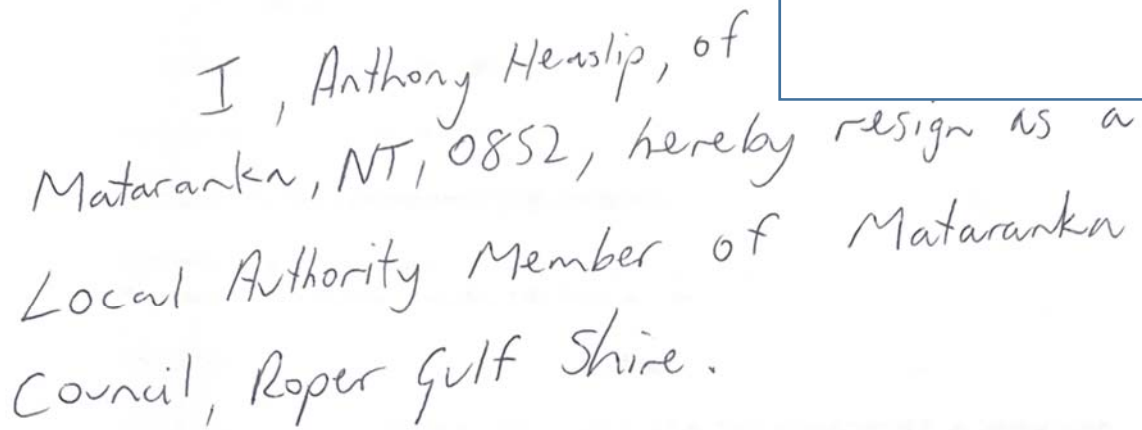 I, Anthony Heaslip, of
Mataranka, NT, 0852, hereby resign as a
Local Authority Member of Mataranka
Council, Roper Gulf Shire.